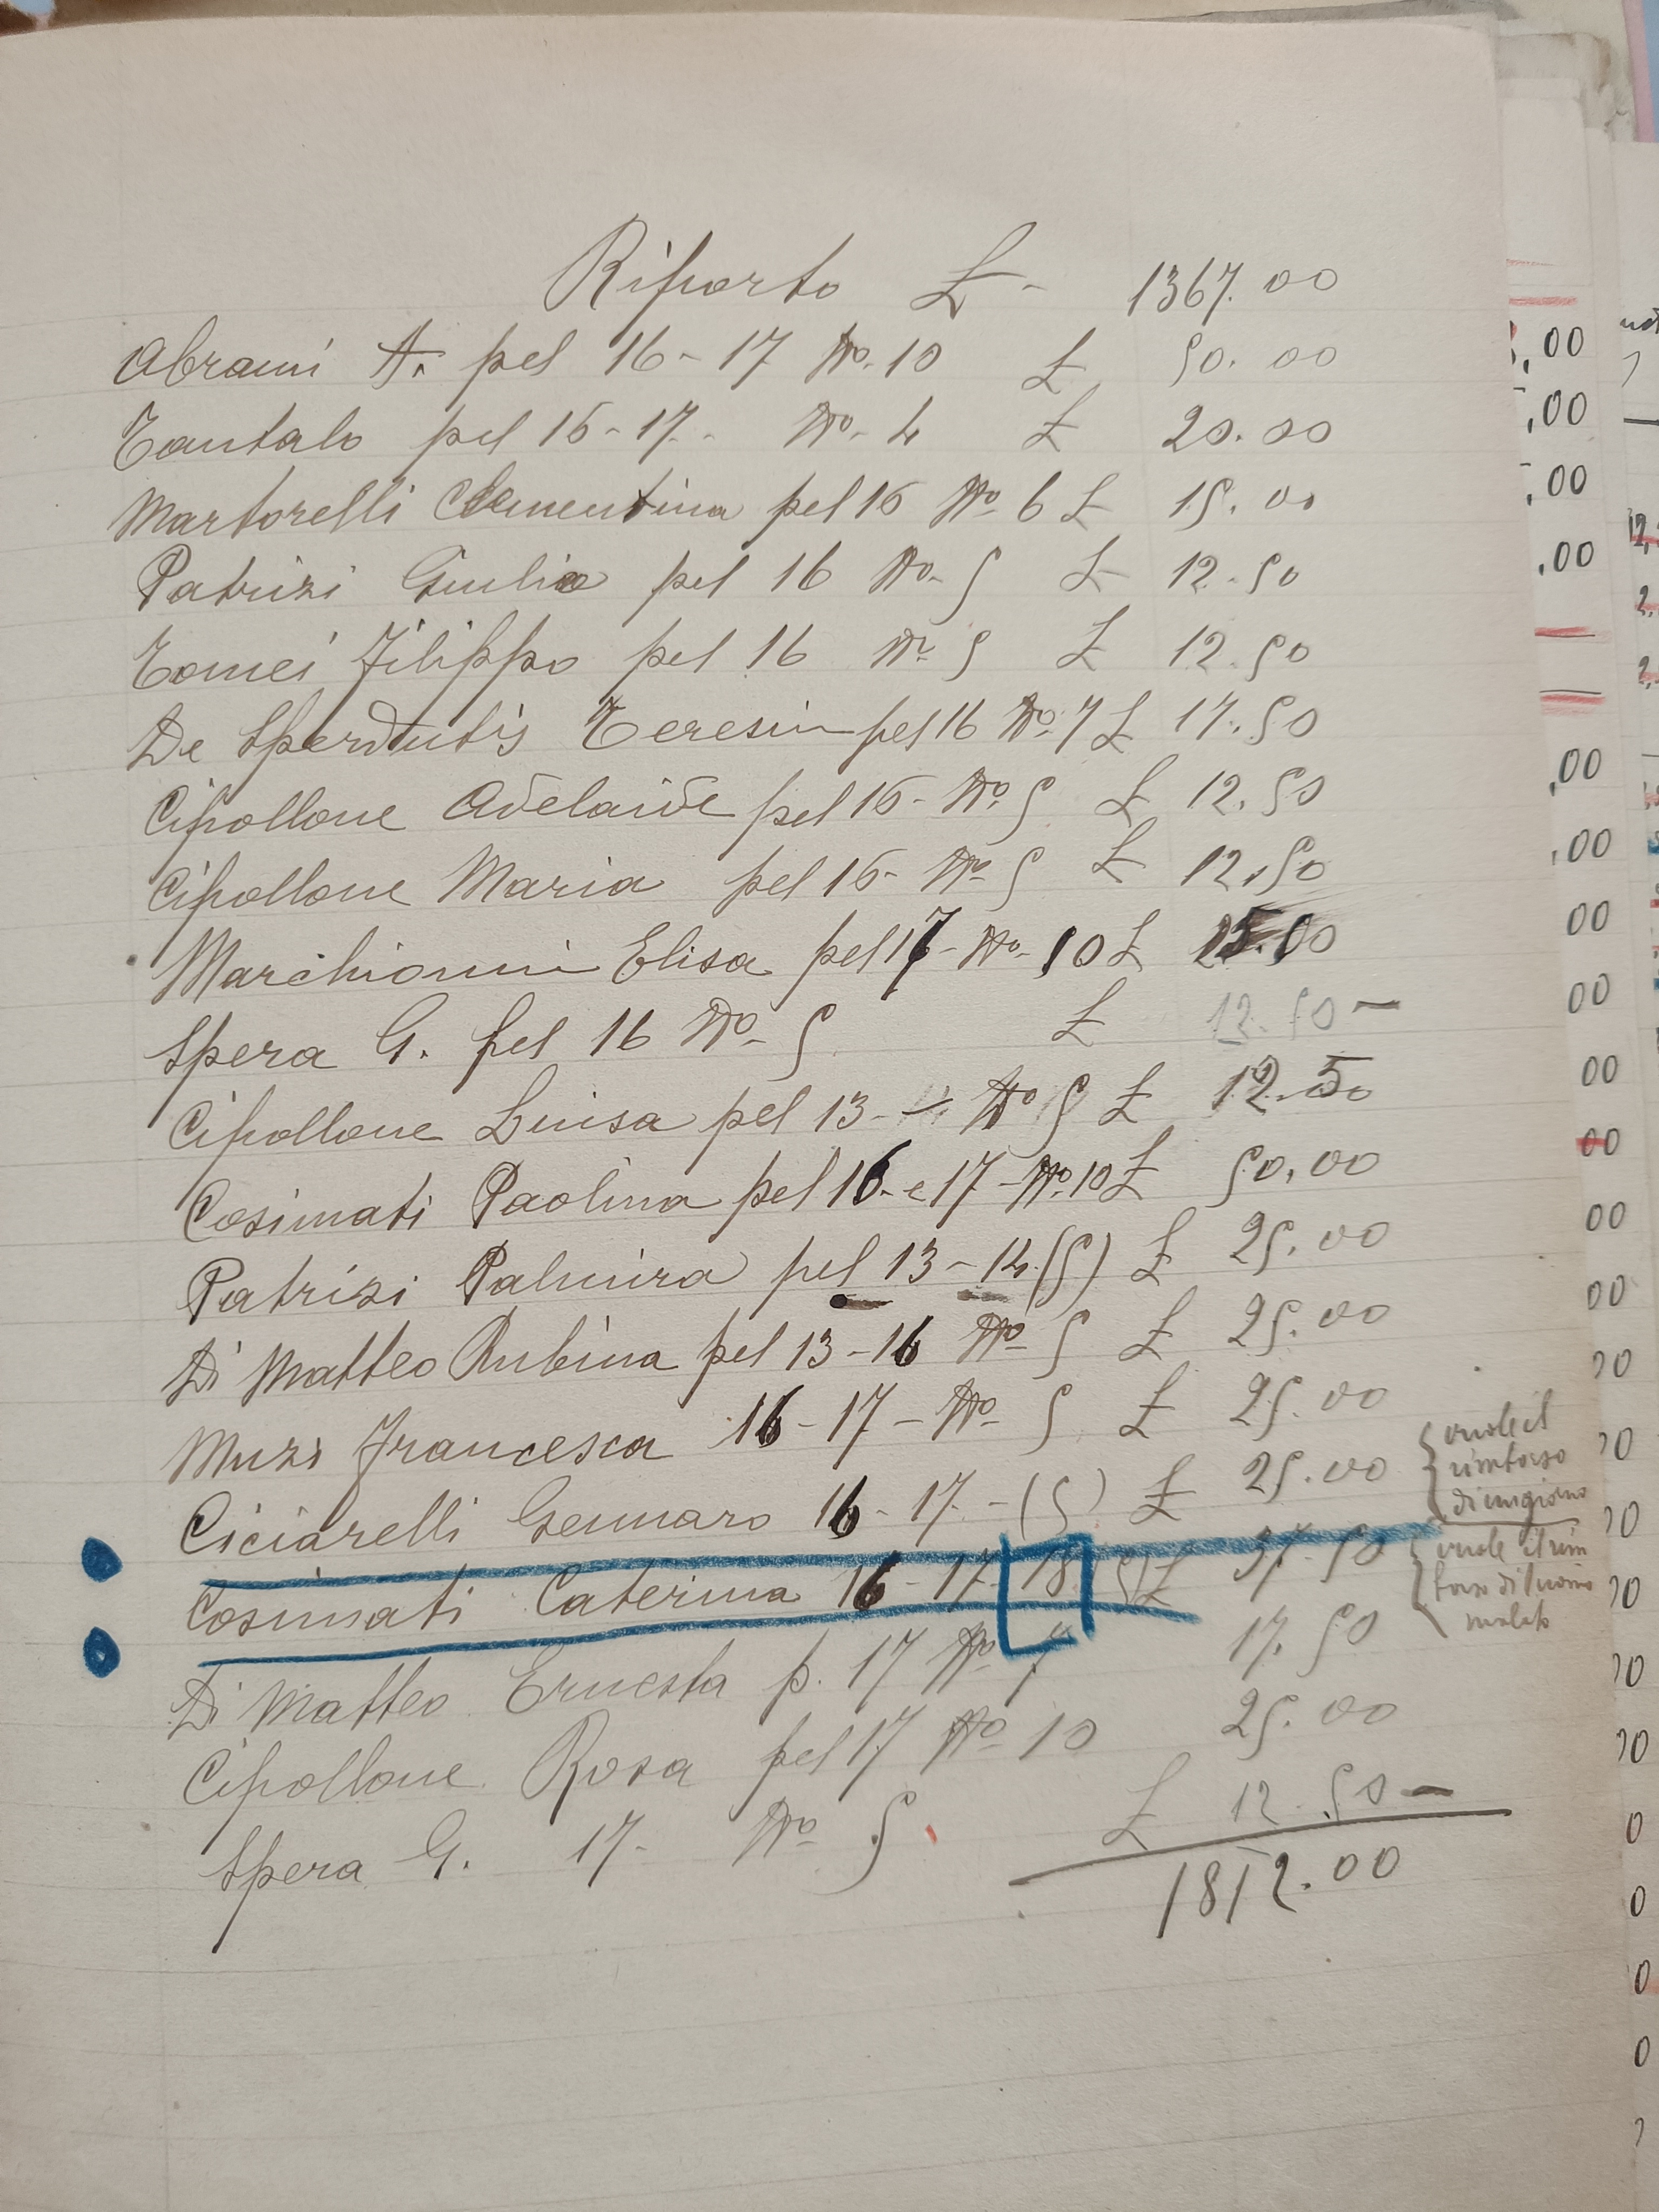 Riporto £ - 1367.00
Abrami A. pel 16 - 17 No. 10 £ 50.00
Tantalo pel 16 - 17 - No - 4 £ 20.00
Martorelli Clementina pel 16 No 6 £ 15.00
Patrizi Giulia pel 16 No - 5 £ 12.50
Tomei Filippo pel 16 No 5 £ 12.50
De Sperdutis Teresin pel 16 No 7 £ 17.50
Cipollone Adelaide pel 16 - No 5 £ 12.50
Cipollone Maria pel 16 - No 5 £ 12.50
Marchionni Elisa pel 17 - No - 10 £ 25.00
Spera G. pel 16 No - 5 £ 12.50 -
Cipollone Luisa pel 13 - No 5 £ 12.50
Cosimati Paolina pel 16 - e 17 - No 10 £ 50.00
Patrizi Palmira pel 13 - 14 (5) £ 25.00
Di Matteo Rubina pel 13 - 16 No 5 £ 25.00
Muzi Francesca 16 - 17 - No 5 £ 25.00
Ciciarelli Gennaro 16 - 17 - (5) £ 25.00
vuole il
rimborso
di un giorno
Cosimati Caterina 16 - 17 - 18 (5) £ 37.50
vuole il rim
borso di
malato
Di Matteo Ernesta p. 17 No 7 17.50
Cipollone Rosa pel 17 No 10 25.00
Spera G. 17 - No 5. £ 12.50 -
1812.00
,00
,00
,00
,00
,00
,00
00
00
00
00
00
00